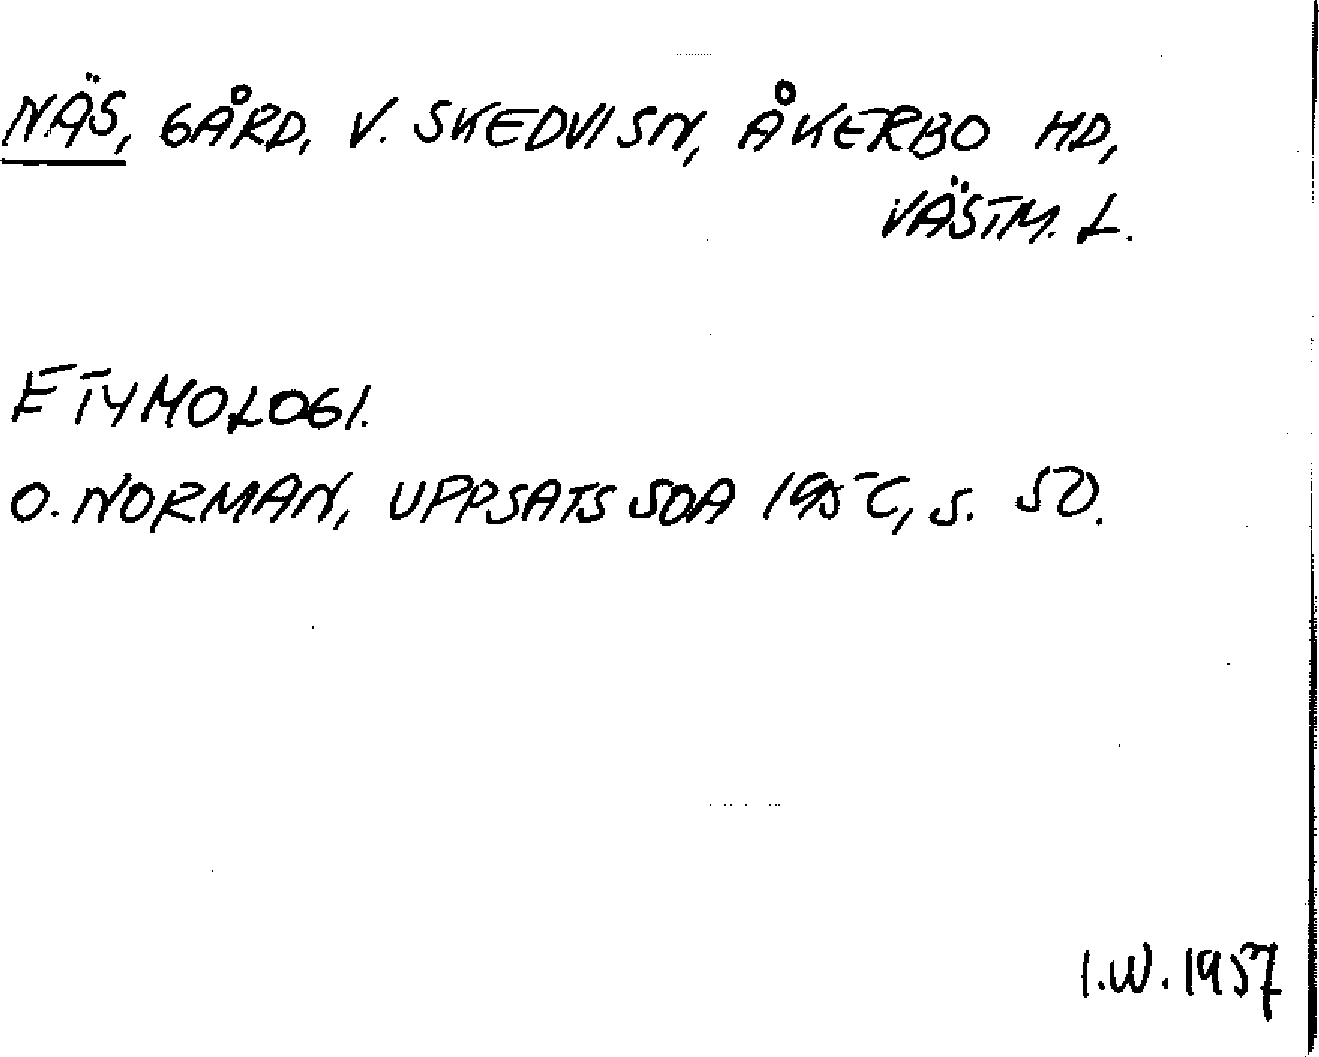 NÄS, GÅRD, V. SKEDVI SN, ÅKERBO HD,
VÄSTM. L.
ETYMOLOGI.
O. NORMAN, UPPSATS SOA 1950, s. 50.
I.W. 1957